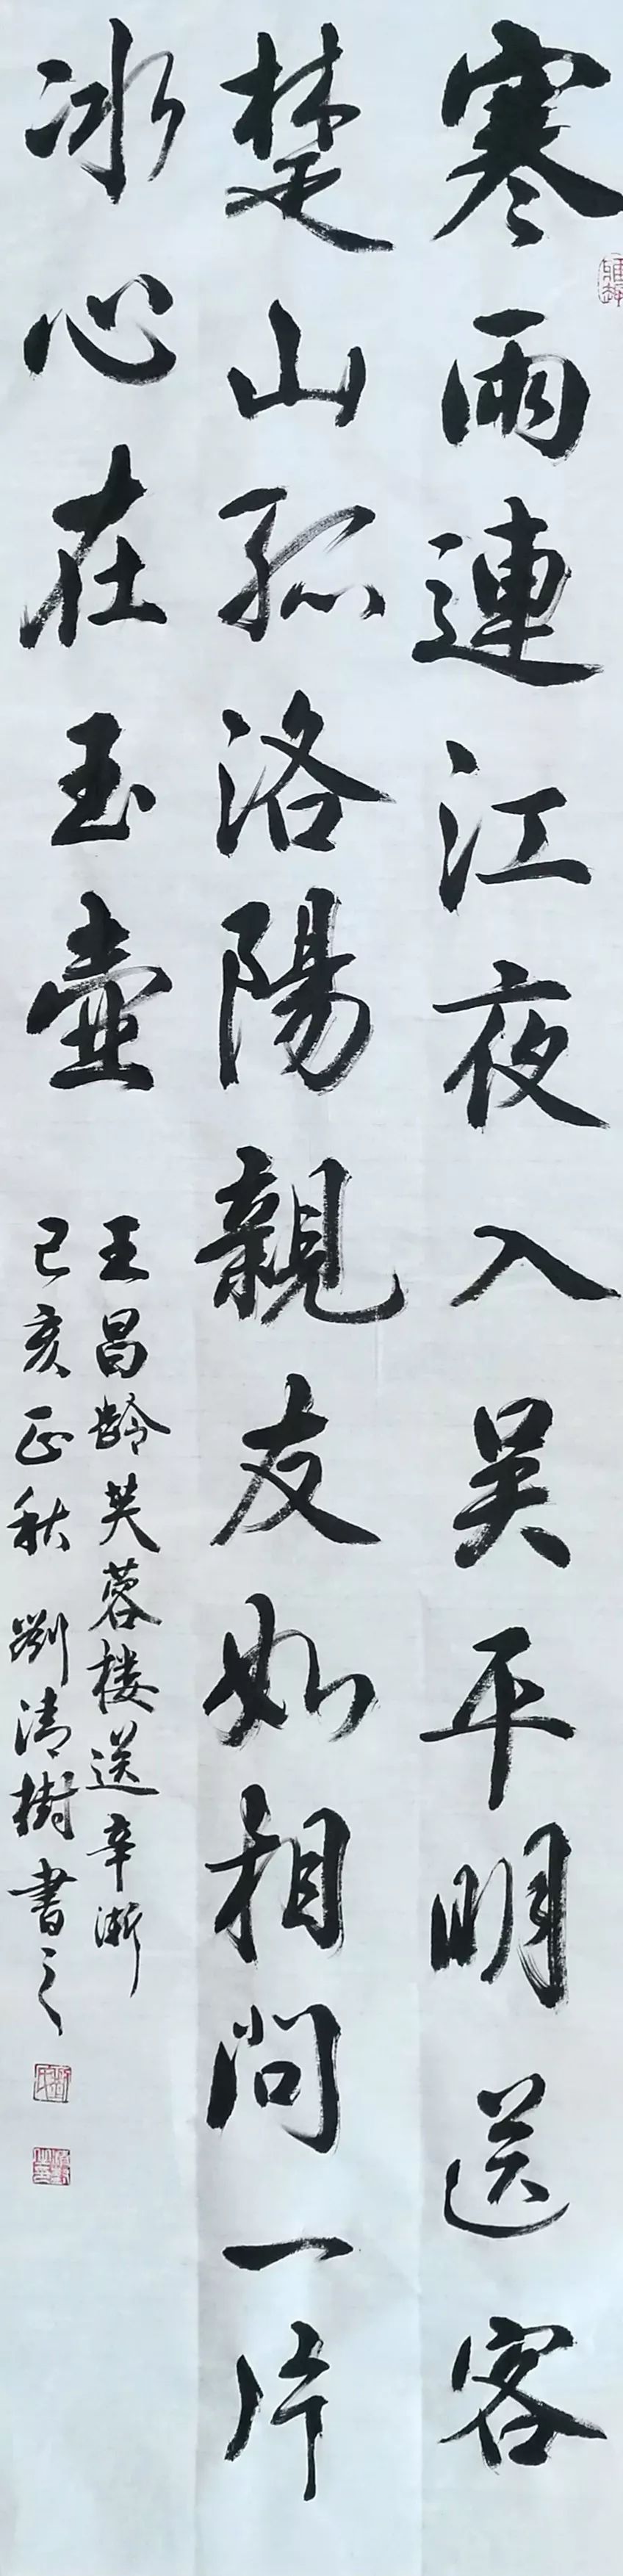 寒雨連江夜入吴平明送客
楚山孤洛陽親友如相問一片
冰心在玉壺
王昌齡芙蓉楼送辛漸
己亥正秋劉清樹書之